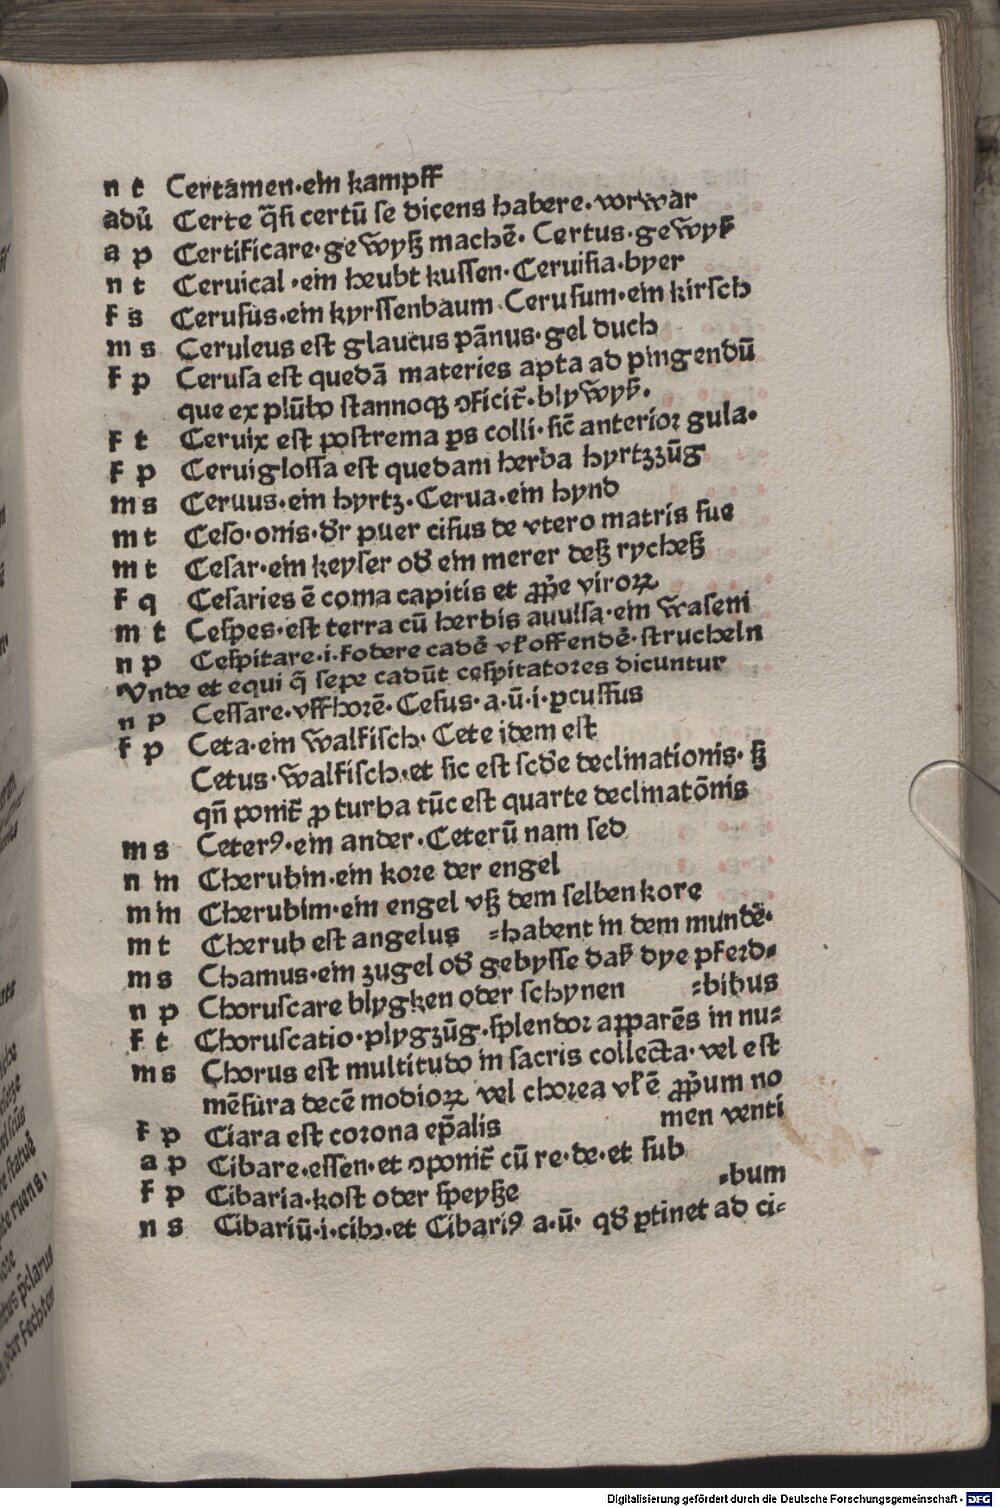 n t Certamen·ein kampff
adū Certe q̄ſi certū ſe dicens habere·vorwar
a p Certificare·gewyß machē· Certus·gewyß
n t Ceruical·ein heubt kuſſen·Ceruiſia·byer
f s Ceruſus·ein kyrſſenbaum Ceruſum·ein kirſch
m s Ceruleus eſt glaucus pānus·gel duch
f p Ceruſa eſt quedā materies apta ad pingendū
que ex plūbo ſtannoqꝫ ꝯficit̄·blywyß·
f t Ceruix eſt poſtrema ps colli·ſic̄ anterioꝛ gula·
f p Ceruigloſſa eſt quedam herba hyrtzzūg
m s Ceruus·ein hyrtz·Cerua·ein hynd
m t Ceſo·onis·dr̄ puer ciſus de vtero matris ſue
m t Ceſar·ein keyſer od̄ ein merer deß rycheß
f q Ceſaries ē coma capitis et ꝓpe viroꝝ
m t Ceſpes·eſt terra cū herbis auulſa·ein waſem
n p Ceſpitare·i·fodere cadē vl̄ offendē·ſtrucheln
Vnde et equi q̄ ſepe cadūt ceſpitatores dicuntur
n p Ceſſare·vffhorē·Ceſus·a·ū·i·ꝑcuſſus
f p Ceta·ein walfiſch· Cete idem eſt
Cetus·walfiſch·et ſic eſt ſcd̄e declinationis·ß
qn̄ ponit̄ ꝓ turba tūc eſt quarte declinatōnis
m s Ceterꝰ·ein ander·Ceterū nam ſed
n m Cherubin·ein koꝛe der engel
m m Cherubim·ein engel vß dem ſelben kore
m t Cherub eſt angelus ⸗habent in dem mundē·
m s Chamus·ein zugel od̄ gebyſſe daß dye pferd⸗
n p Choruſcare blygken oder ſchynen ⸗bibus
f t Choruſcatio·plygzūg·ſplendoꝛ apparēs in nu⸗
m s Chorus eſt multitudo in ſacris collecta·vel eſt
mēſura decē modioꝝ vel choꝛea vl̄ ē ꝓpum no
f p Ciara eſt coꝛona ep̄alis men venti
a p Cibare·eſſen·et ꝯponit̄ cū re·de·et ſub
f p Cibaria·koſt oder ſpeyße ⸗bum
n s Cibariū·i·cibꝰ·et Cibariꝰ a·ū· qd̄ ꝑtinet ad ci⸗
Digitalisierung gefördert durch die Deutsche Forschungsgemeinschaft - DFG